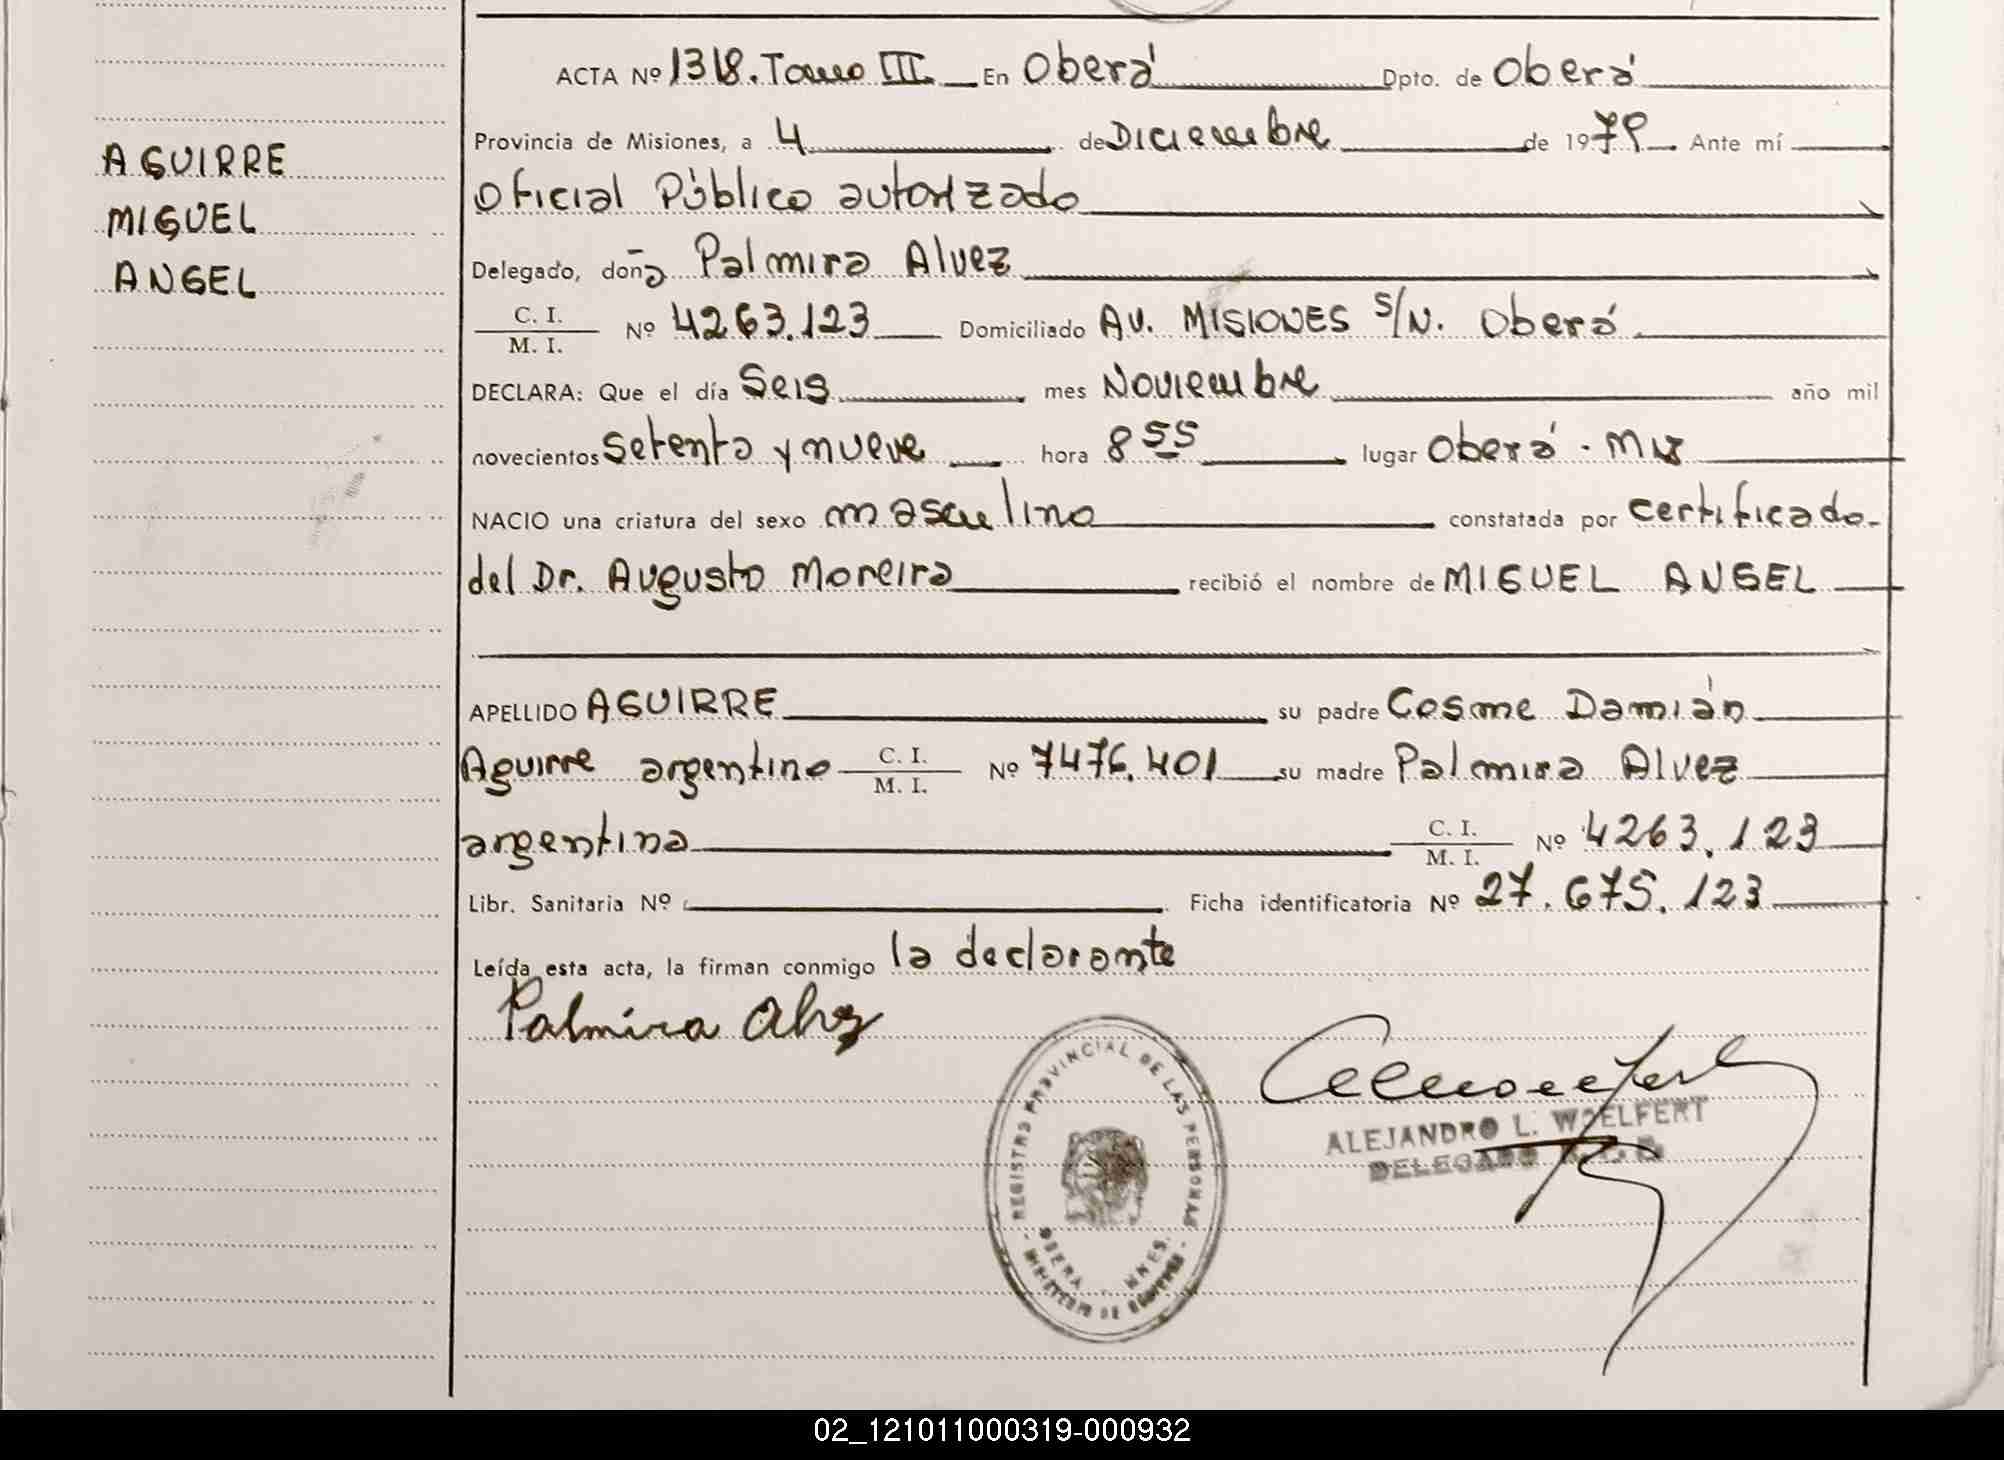 AGUIRRE
MIGUEL
ANGEL
ACTA Nº 1318. Tomo III. En Oberá Dpto. de Oberá
Provincia de Misiones, a 4 de Diciembre de 1979 Ante mí
Oficial Público autorizado
Delegado, doña Palmira Alvez
C. I. / M. I. Nº 4263.123 Domiciliado Av. MISIONES S/N. Oberá
DECLARA: Que el día Seis mes Noviembre año mil
novecientos setenta y nueve hora 8 55 lugar Oberá - Mns
NACIO una criatura del sexo masculino constatada por certificado
del Dr. Augusto Moreira recibió el nombre de MIGUEL ANGEL
APELLIDO AGUIRRE su padre Cosme Damián
Aguirre argentino C. I. / M. I. Nº 7476.401 su madre Palmira Alvez
argentina C. I. / M. I. Nº 4263.123
Libr. Sanitaria Nº Ficha identificatoria Nº 27.675.123
Leída esta acta, la firman conmigo la declarante
Palmira Alvez
REGISTRO PROVINCIAL DE LAS PERSONAS
OBERA - MNES.
MINISTERIO DE GOBIERNO
ALEJANDRO L. WOELFERT
DELEGADO
02_121011000319-000932